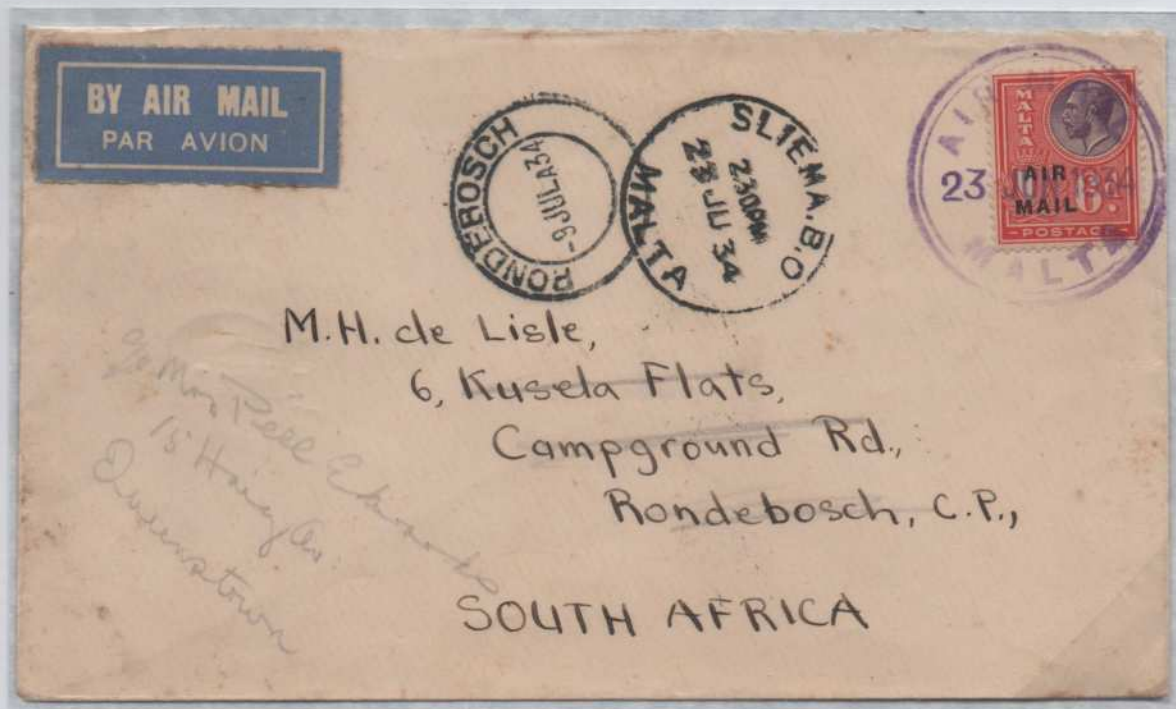 BY AIR MAIL
PAR AVION
RONDEBOSCH
-9 JUL A34
SLIEMA.B.O
2 30PM
23 JU 34
MALTA
AIR
23 JUN 1934
MALTA
MALTA
AIR
MAIL
6D
POSTAGE
M.H. de Lisle,
6, Kusela Flats,
Campground Rd.,
Rondebosch, C.P.,
SOUTH AFRICA
c/o Mrs Peel
15
Queenstown